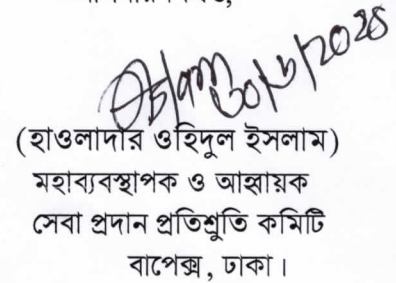 ৩০/৬/2025
(হাওলাদার ওহিদুল ইসলাম)
মহাব্যবস্থাপক ও আহ্বায়ক
সেবা প্রদান প্রতিশ্রুতি কমিটি
বাপেক্স, ঢাকা।